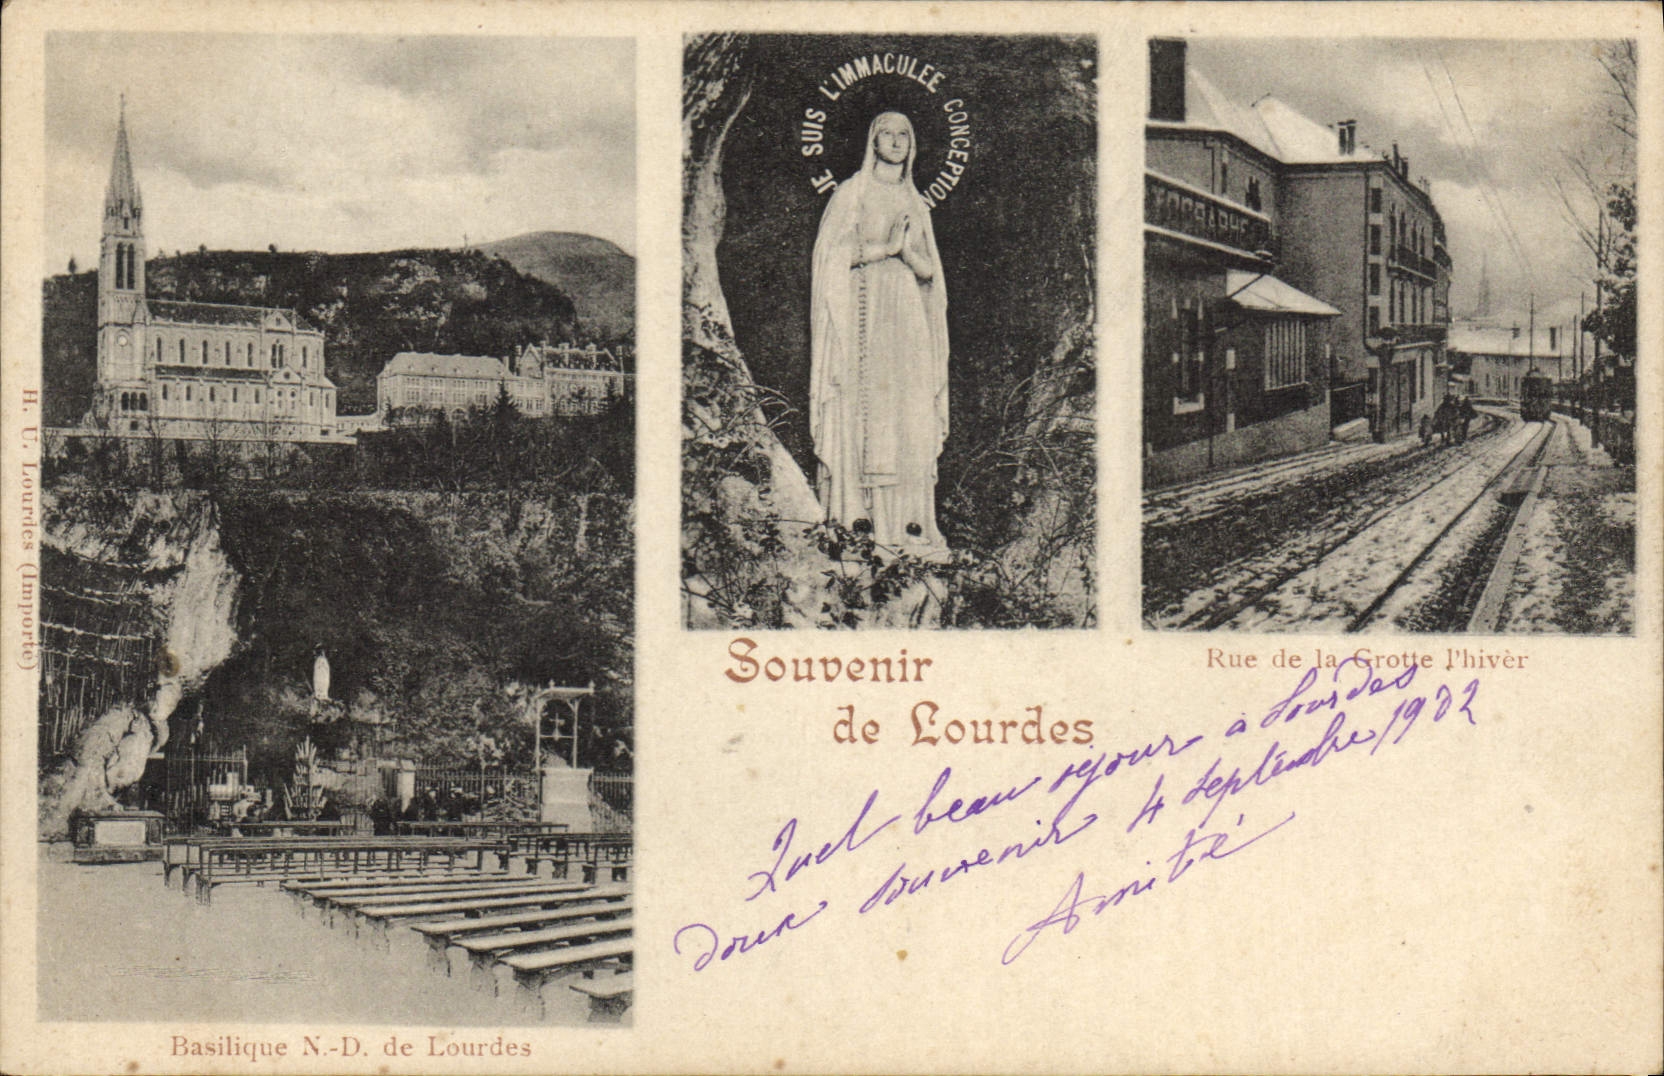 H. U. Lourdes (Importé)
JE SUIS L'IMMACULEE CONCEPTION
TOGRAPHE
Souvenir
de Lourdes
Rue de la Grotte l'hivèr
Quel beau séjour à Lourdes
doux souvenir 4 septembre 1902
Amitié
Basilique N.-D. de Lourdes